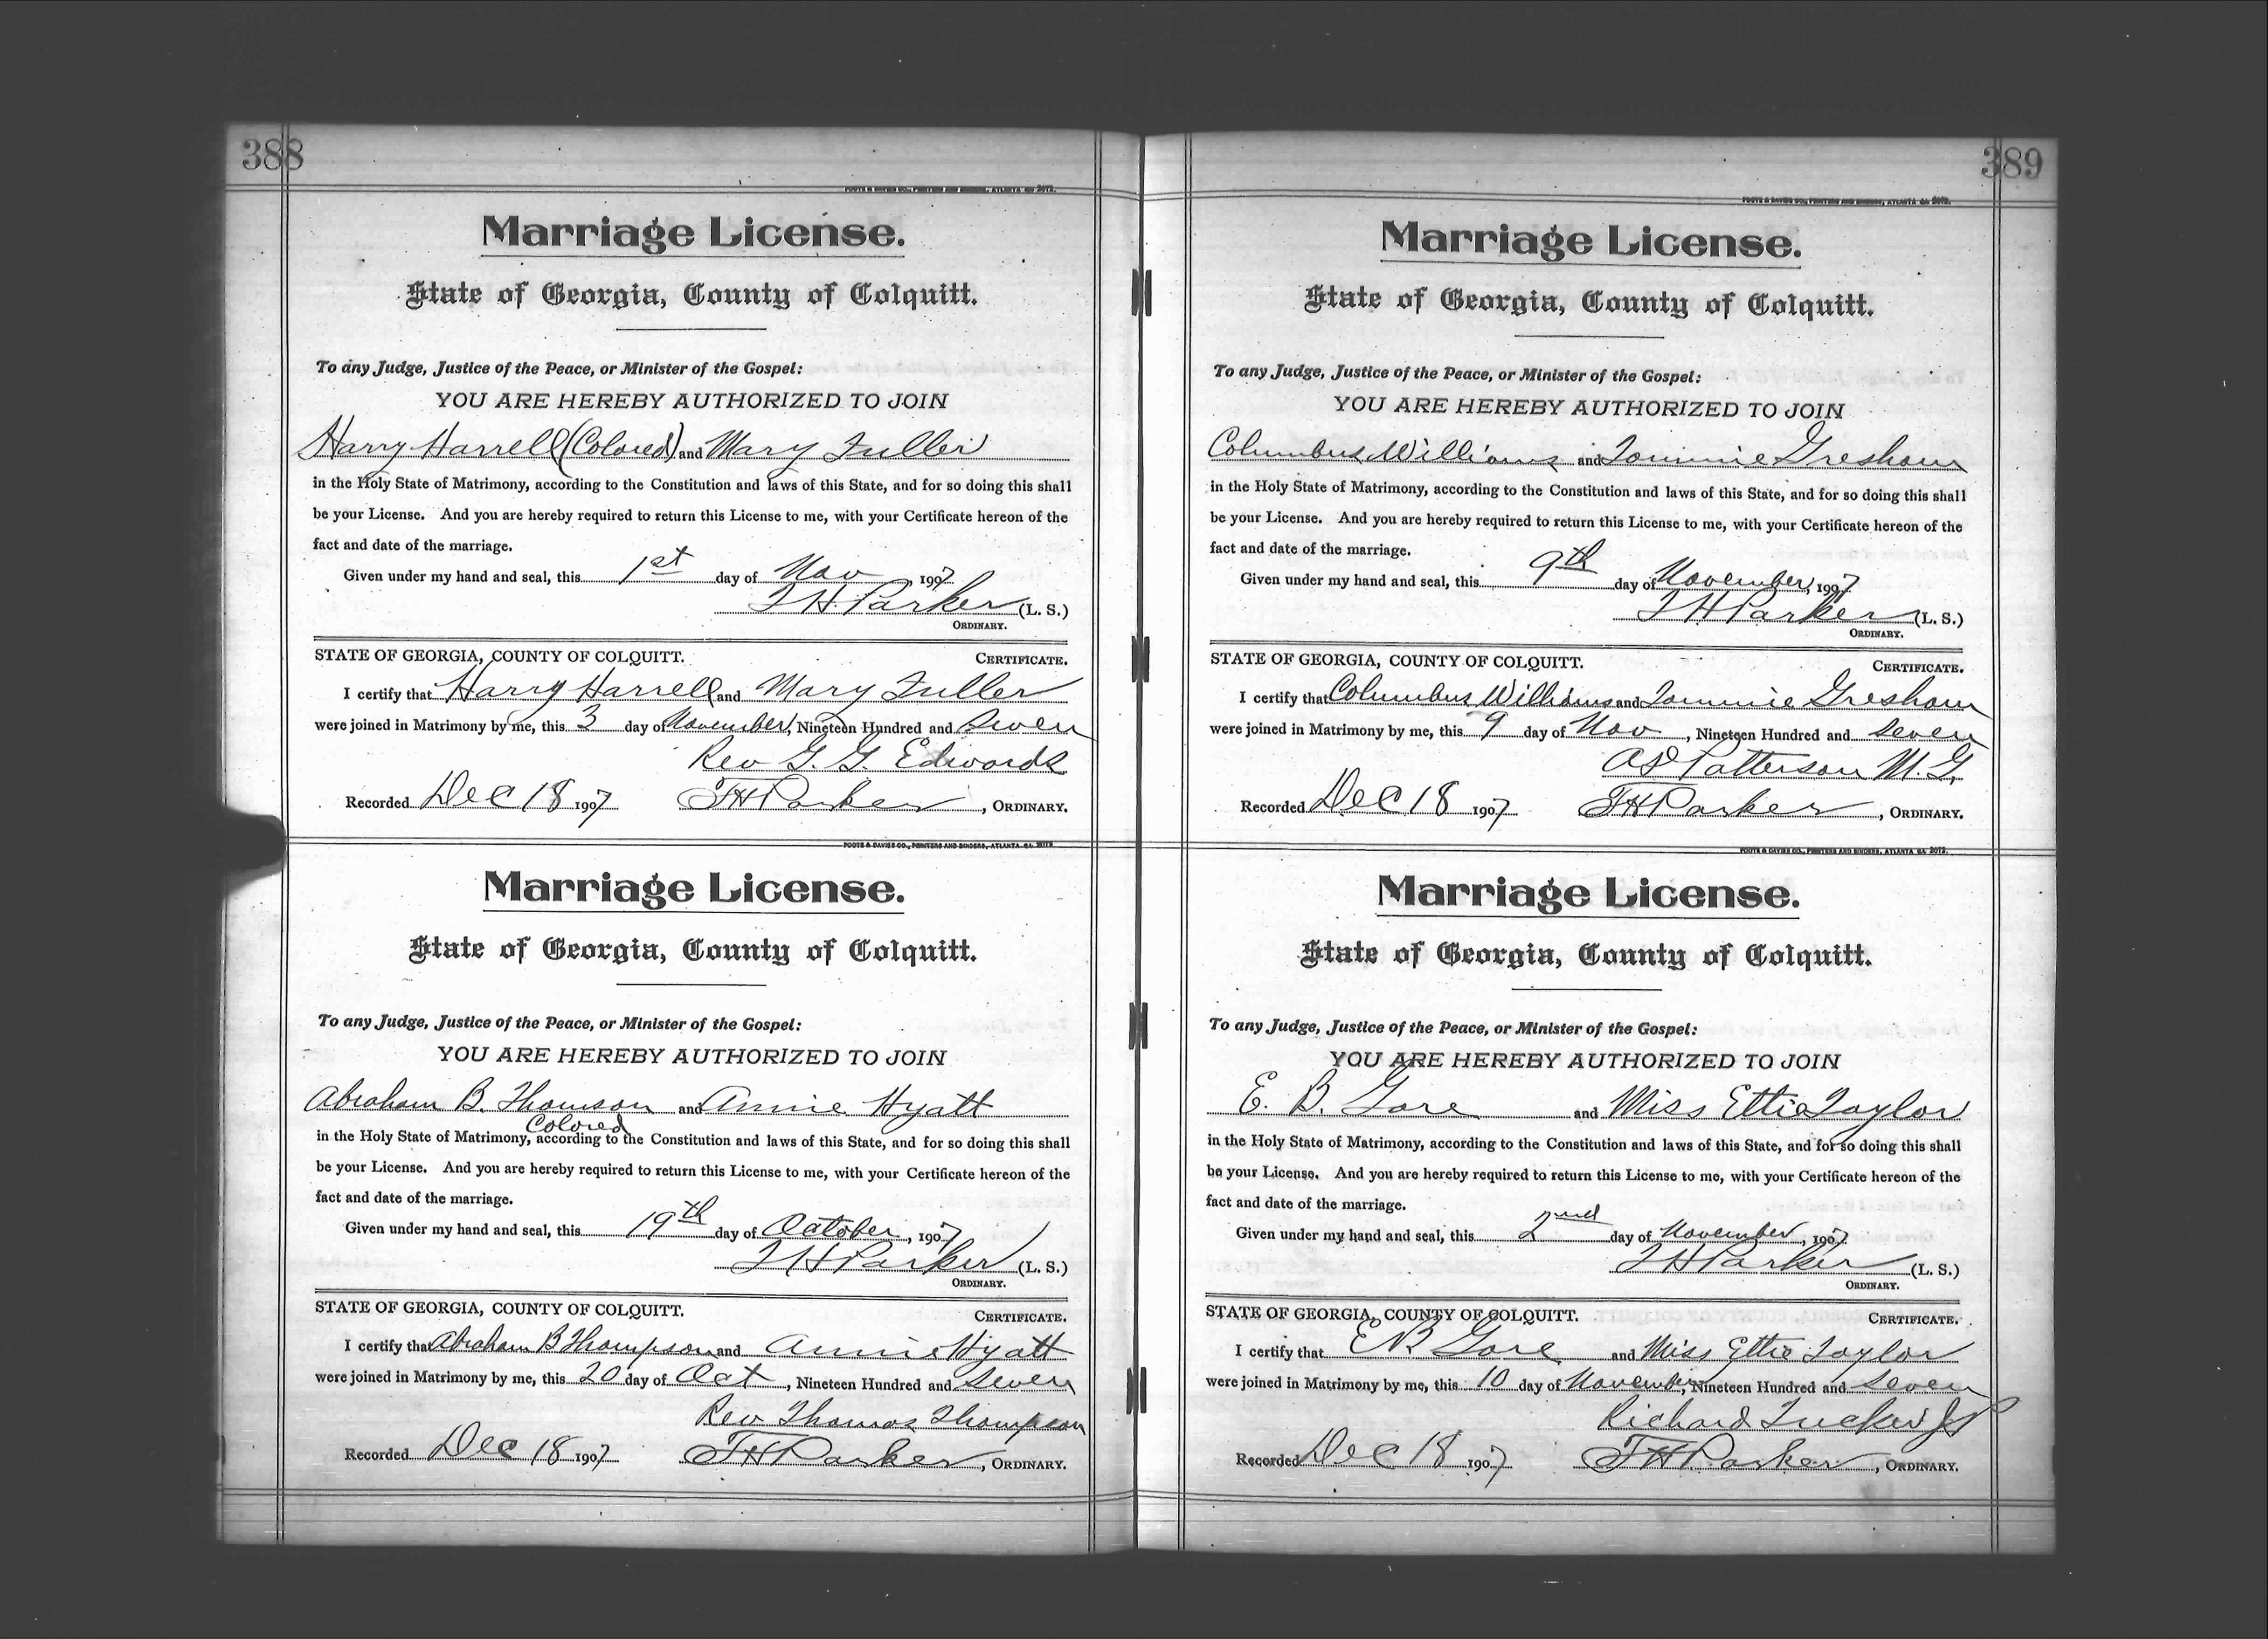 388
FOOTE & DAVIES CO., PRINTERS AND BINDERS, ATLANTA GA. 2072.
Marriage License.
State of Georgia, County of Colquitt.
To any Judge, Justice of the Peace, or Minister of the Gospel:
YOU ARE HEREBY AUTHORIZED TO JOIN
Harry Harrell (Colored) and Mary Fuller
in the Holy State of Matrimony, according to the Constitution and laws of this State, and for so doing this shall
be your License. And you are hereby required to return this License to me, with your Certificate hereon of the
fact and date of the marriage.
Given under my hand and seal, this 1st day of Nov, 1907
T H Parker (L. S.)
ORDINARY.
STATE OF GEORGIA, COUNTY OF COLQUITT. CERTIFICATE.
I certify that Harry Harrell and Mary Fuller
were joined in Matrimony by me, this 3 day of November, Nineteen Hundred and Seven
Rev G. G. Edwards
Recorded Dec 18 1907 T H Parker, ORDINARY.
FOOTE & DAVIES CO., PRINTERS AND BINDERS, ATLANTA GA. 2072
Marriage License.
State of Georgia, County of Colquitt.
To any Judge, Justice of the Peace, or Minister of the Gospel:
YOU ARE HEREBY AUTHORIZED TO JOIN
Abraham B. Thomson and Annie Hyatt
Colored
in the Holy State of Matrimony, according to the Constitution and laws of this State, and for so doing this shall
be your License. And you are hereby required to return this License to me, with your Certificate hereon of the
fact and date of the marriage.
Given under my hand and seal, this 19th day of October, 1907
T H Parker (L. S.)
ORDINARY.
STATE OF GEORGIA, COUNTY OF COLQUITT. CERTIFICATE.
I certify that Abraham B Thompson and Annie Hyatt
were joined in Matrimony by me, this 20 day of Oct, Nineteen Hundred and Seven
Rev Thomas Thompson
Recorded Dec 18 1907 T H Parker, ORDINARY.
389
FOOTE & DAVIES CO., PRINTERS AND BINDERS, ATLANTA GA. 2072.
Marriage License.
State of Georgia, County of Colquitt.
To any Judge, Justice of the Peace, or Minister of the Gospel:
YOU ARE HEREBY AUTHORIZED TO JOIN
Columbus Williams and Tommie Gresham
in the Holy State of Matrimony, according to the Constitution and laws of this State, and for so doing this shall
be your License. And you are hereby required to return this License to me, with your Certificate hereon of the
fact and date of the marriage.
Given under my hand and seal, this 9th day of November, 1907
T H Parker (L. S.)
ORDINARY.
STATE OF GEORGIA, COUNTY OF COLQUITT. CERTIFICATE.
I certify that Columbus Williams and Tommie Gresham
were joined in Matrimony by me, this 9 day of Nov, Nineteen Hundred and Seven
Patterson M. G.
Recorded Dec 18 1907 T H Parker, ORDINARY.
FOOTE & DAVIES CO., PRINTERS AND BINDERS, ATLANTA GA. 2072.
Marriage License.
State of Georgia, County of Colquitt.
To any Judge, Justice of the Peace, or Minister of the Gospel:
YOU ARE HEREBY AUTHORIZED TO JOIN
E. B. Gore and Miss Ettie Taylor
in the Holy State of Matrimony, according to the Constitution and laws of this State, and for so doing this shall
be your License. And you are hereby required to return this License to me, with your Certificate hereon of the
fact and date of the marriage.
Given under my hand and seal, this 2nd day of November, 1907
T H Parker (L. S.)
ORDINARY.
STATE OF GEORGIA, COUNTY OF COLQUITT. CERTIFICATE.
I certify that E B Gore and Miss Ettie Taylor
were joined in Matrimony by me, this 10 day of November, Nineteen Hundred and Seven
Richard Tucker JP
Recorded Dec 18 1907 T H Parker, ORDINARY.